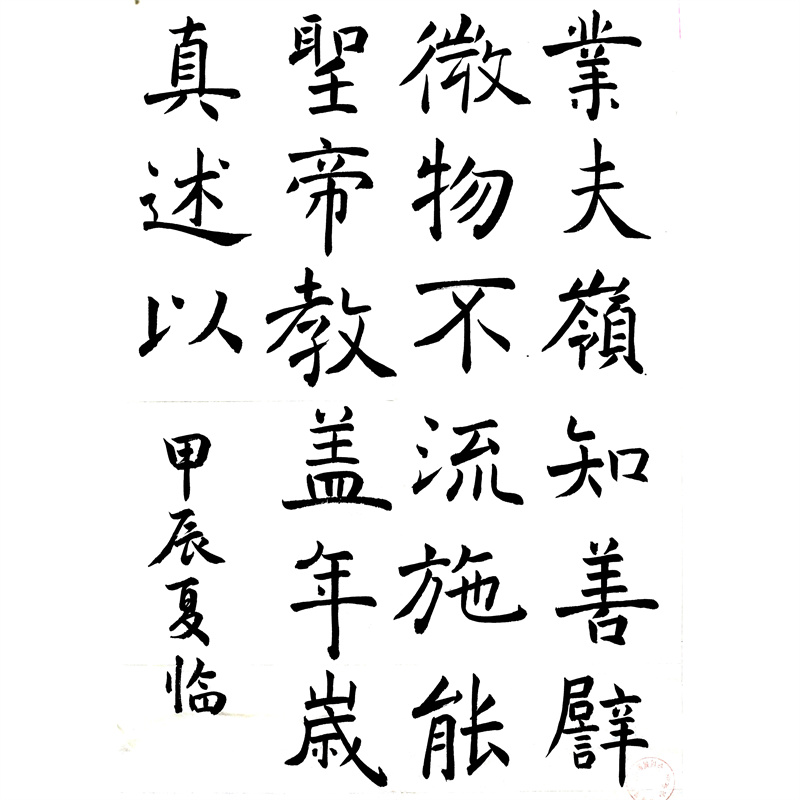 業夫嶺知善譬
微物不流施能
聖帝教盖年嵗
真述以
甲辰夏临